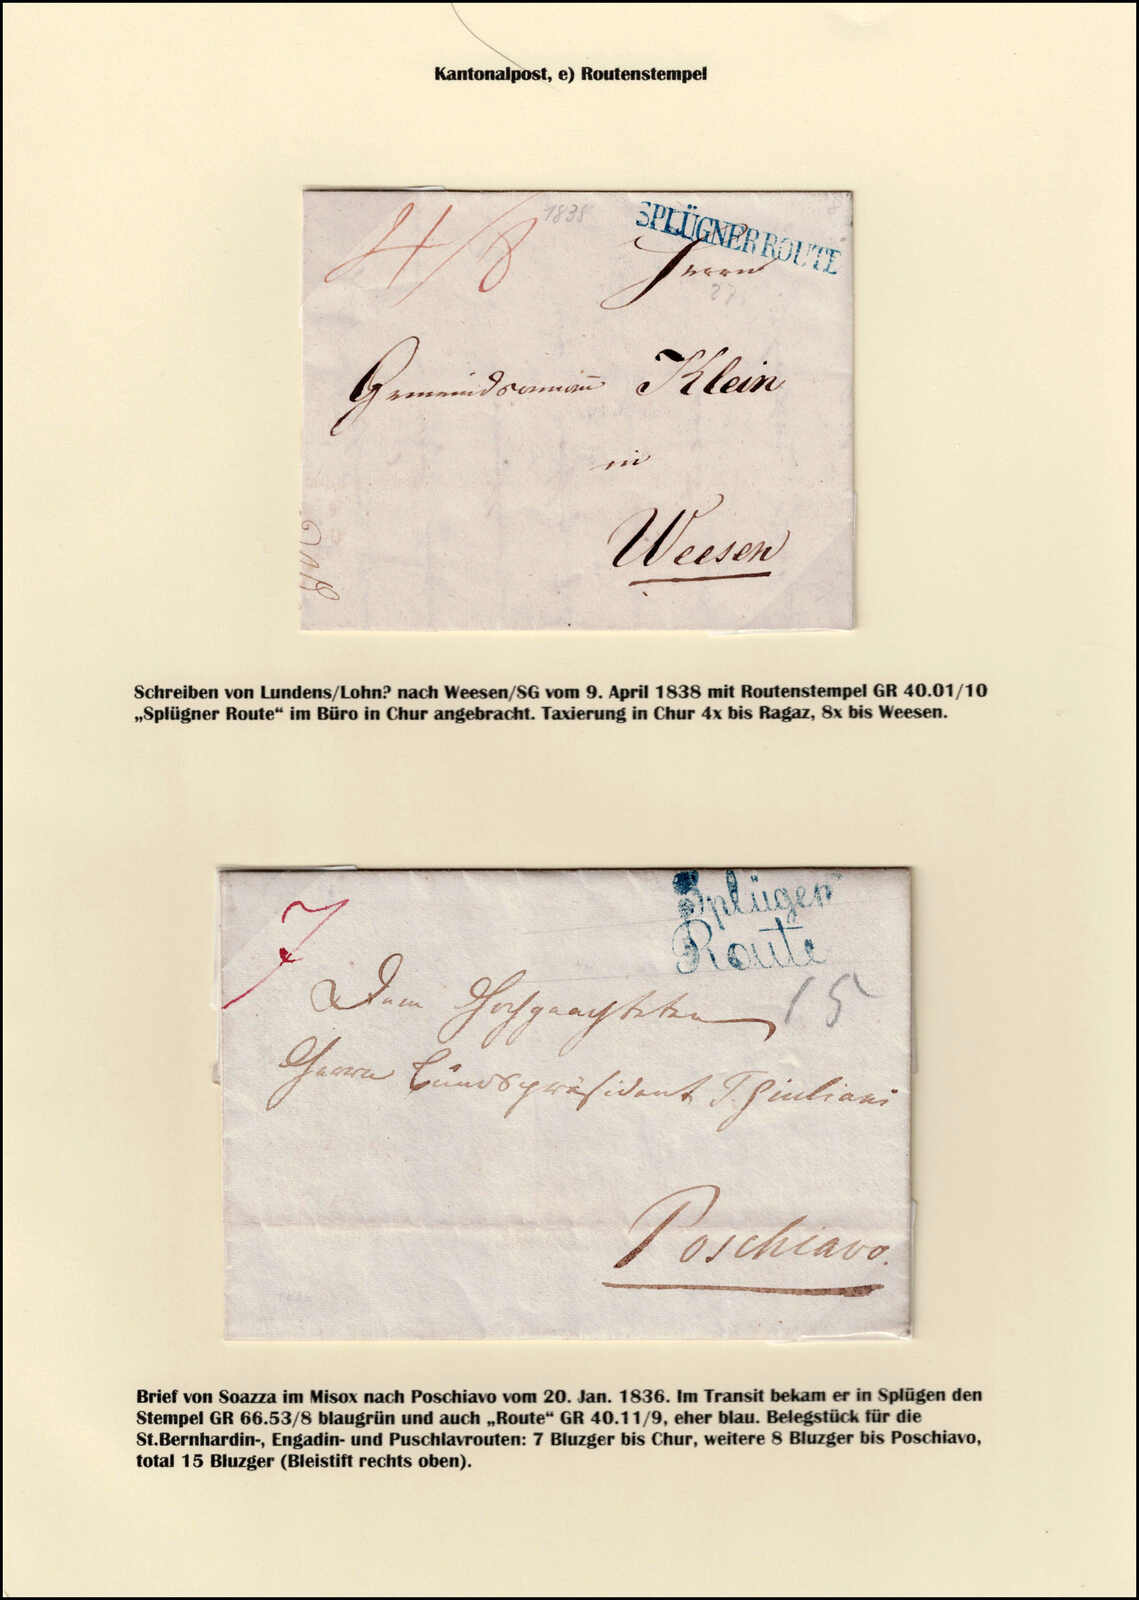 Kantonalpost, e) Routenstempel
4/8 1838 SPLÜGNER ROUTE
Herrn
27.
Gemeindsamman Klein
in
Weesen
Schreiben von Lundens/Lohn? nach Weesen/SG vom 9. April 1838 mit Routenstempel GR 40.01/10
„Splügner Route“ im Büro in Chur angebracht. Taxierung in Chur 4x bis Ragaz, 8x bis Weesen.
Splügen
7 Route
15
Dem Hochgeachteten
Herrn Bundspräsident T. Giuliani
Poschiavo.
Brief von Soazza im Misox nach Poschiavo vom 20. Jan. 1836. Im Transit bekam er in Splügen den
Stempel GR 66.53/8 blaugrün und auch „Route“ GR 40.11/9, eher blau. Belegstück für die
St.Bernhardin-, Engadin- und Puschlavrouten: 7 Bluzger bis Chur, weitere 8 Bluzger bis Poschiavo,
total 15 Bluzger (Bleistift rechts oben).